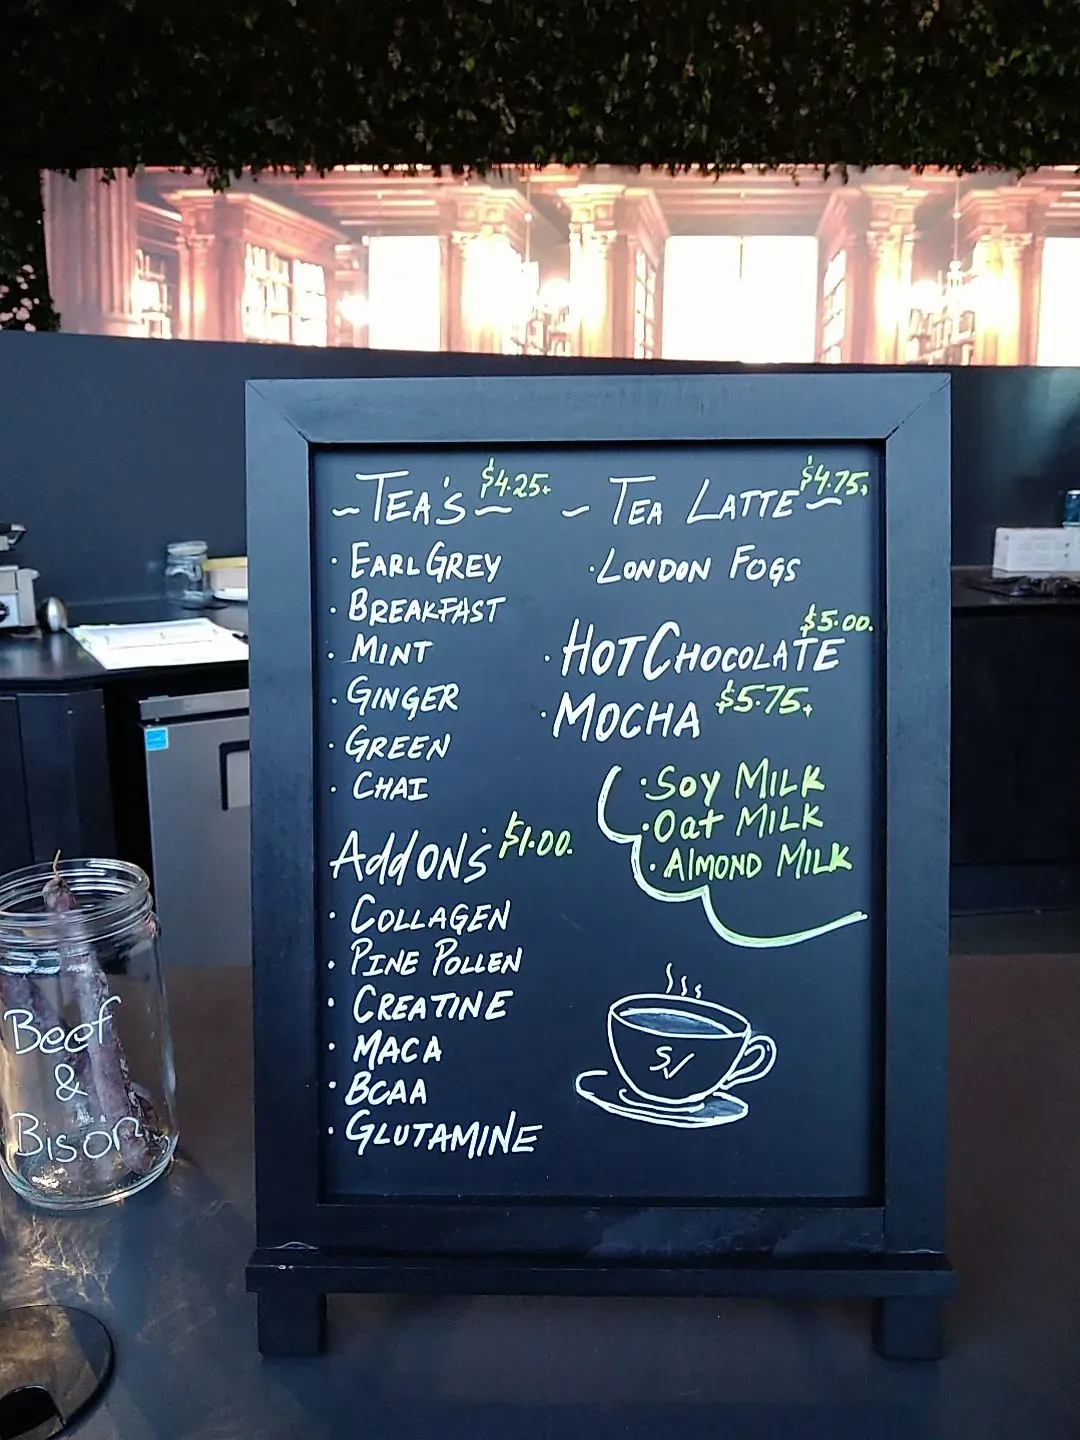 ~TEA'S~ $4.25+
· EARL GREY
· BREAKFAST
· MINT
· GINGER
· GREEN
· CHAI
Add ON'S $1.00.
· COLLAGEN
· PINE POLLEN
· CREATINE
· MACA
· BCAA
· GLUTAMINE
~ TEA LATTE ~ $4.75+
· LONDON FOGS
· HOT CHOCOLATE $5.00.
· MOCHA $5.75+
· SOY MILK
· Oat MILK
· AlMOND MILK
SV
Beef
&
Bison